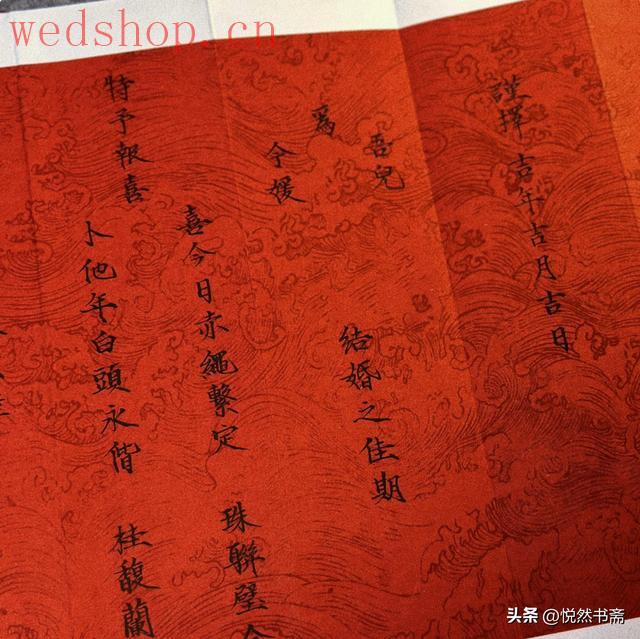 wedshop.cn
謹擇吉年吉月吉日
吾兒
為
令媛
結婚之佳期
喜今日赤繩繫定
珠聯璧合
卜他年白頭永偕
桂馥蘭
特予報喜
头条 @悦然书斋